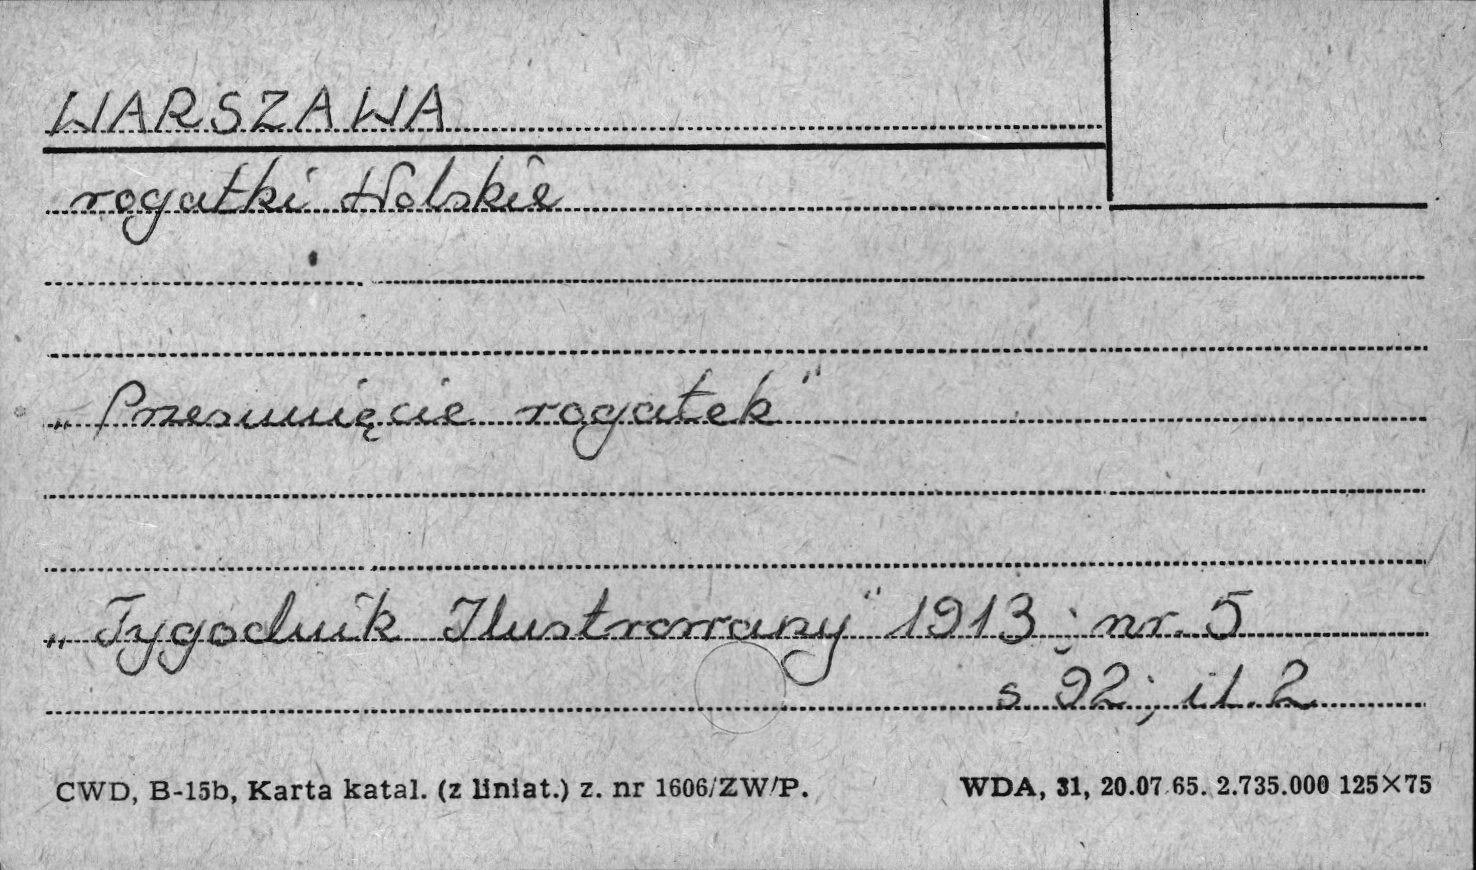 WARSZAWA
rogatki Wolskie
„Przesunięcie rogatek"
„Tygodnik Ilustrowany" 1913; nr. 5
s 92; il. 2
CWD, B-15b, Karta katal. (z liniat.) z. nr 1606/ZW/P. WDA, 31, 20.07.65. 2.735.000 125×75